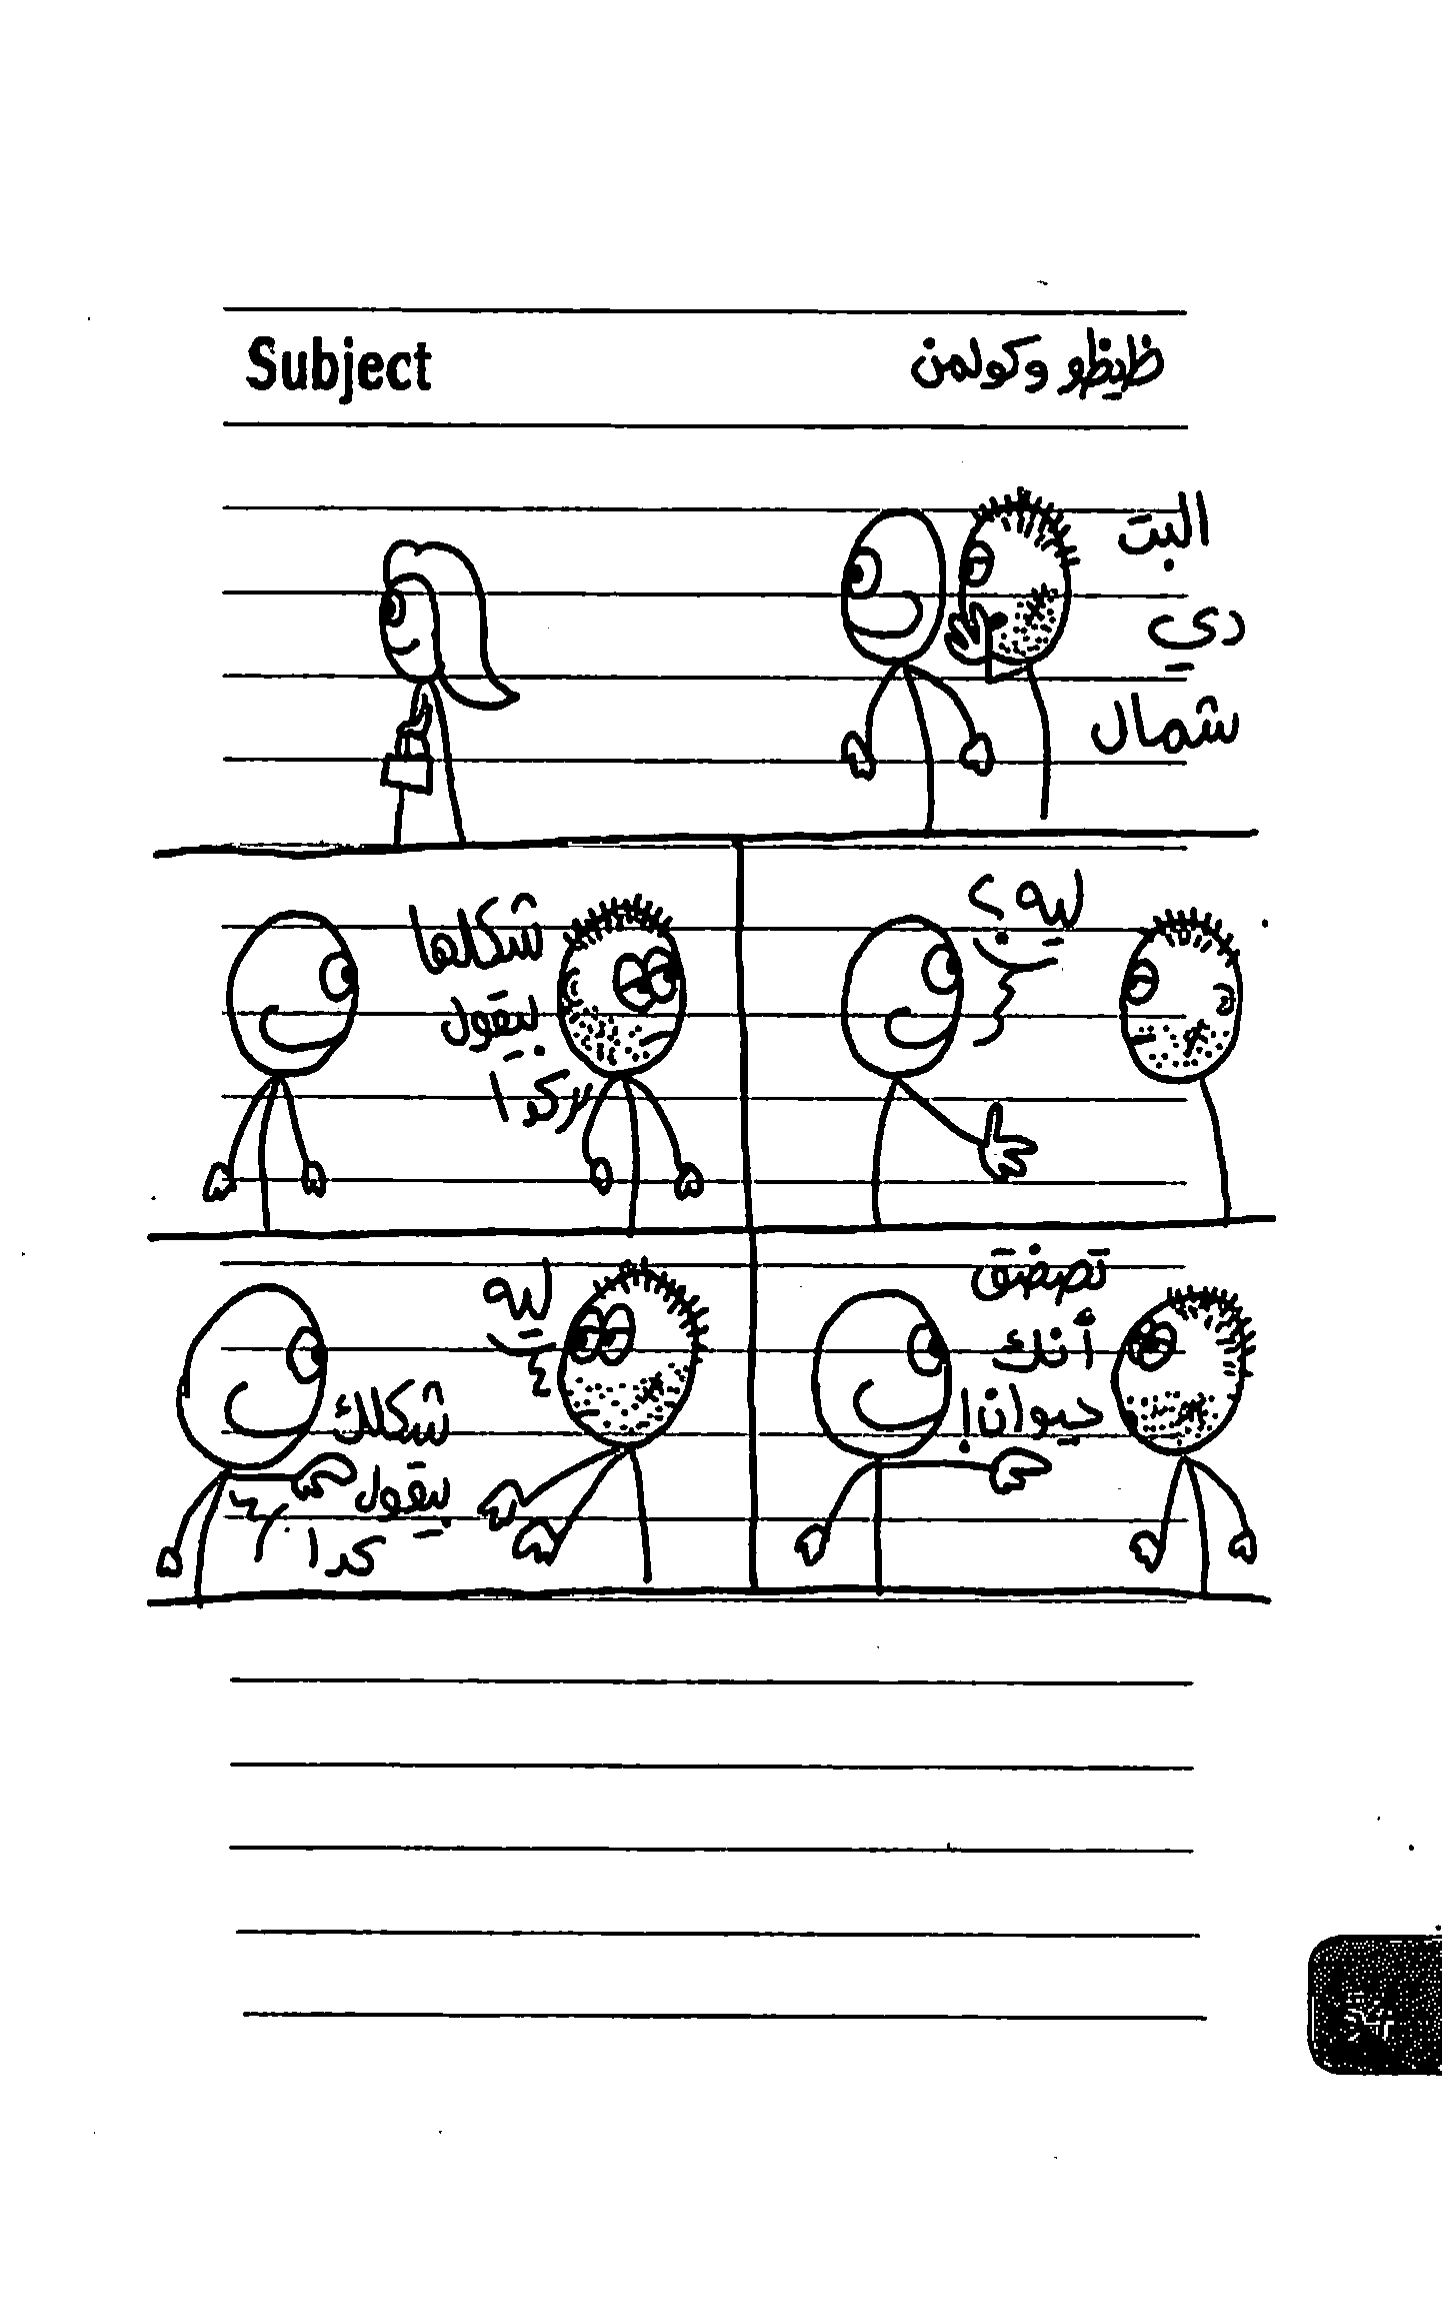 Subject
ظيظو وكولمن
البت
دى
شمال
ليه؟
شكلها
بيقول
كدا
تصضق
أنك
حيوان!
ليه
شكلك
بيقول
كدا